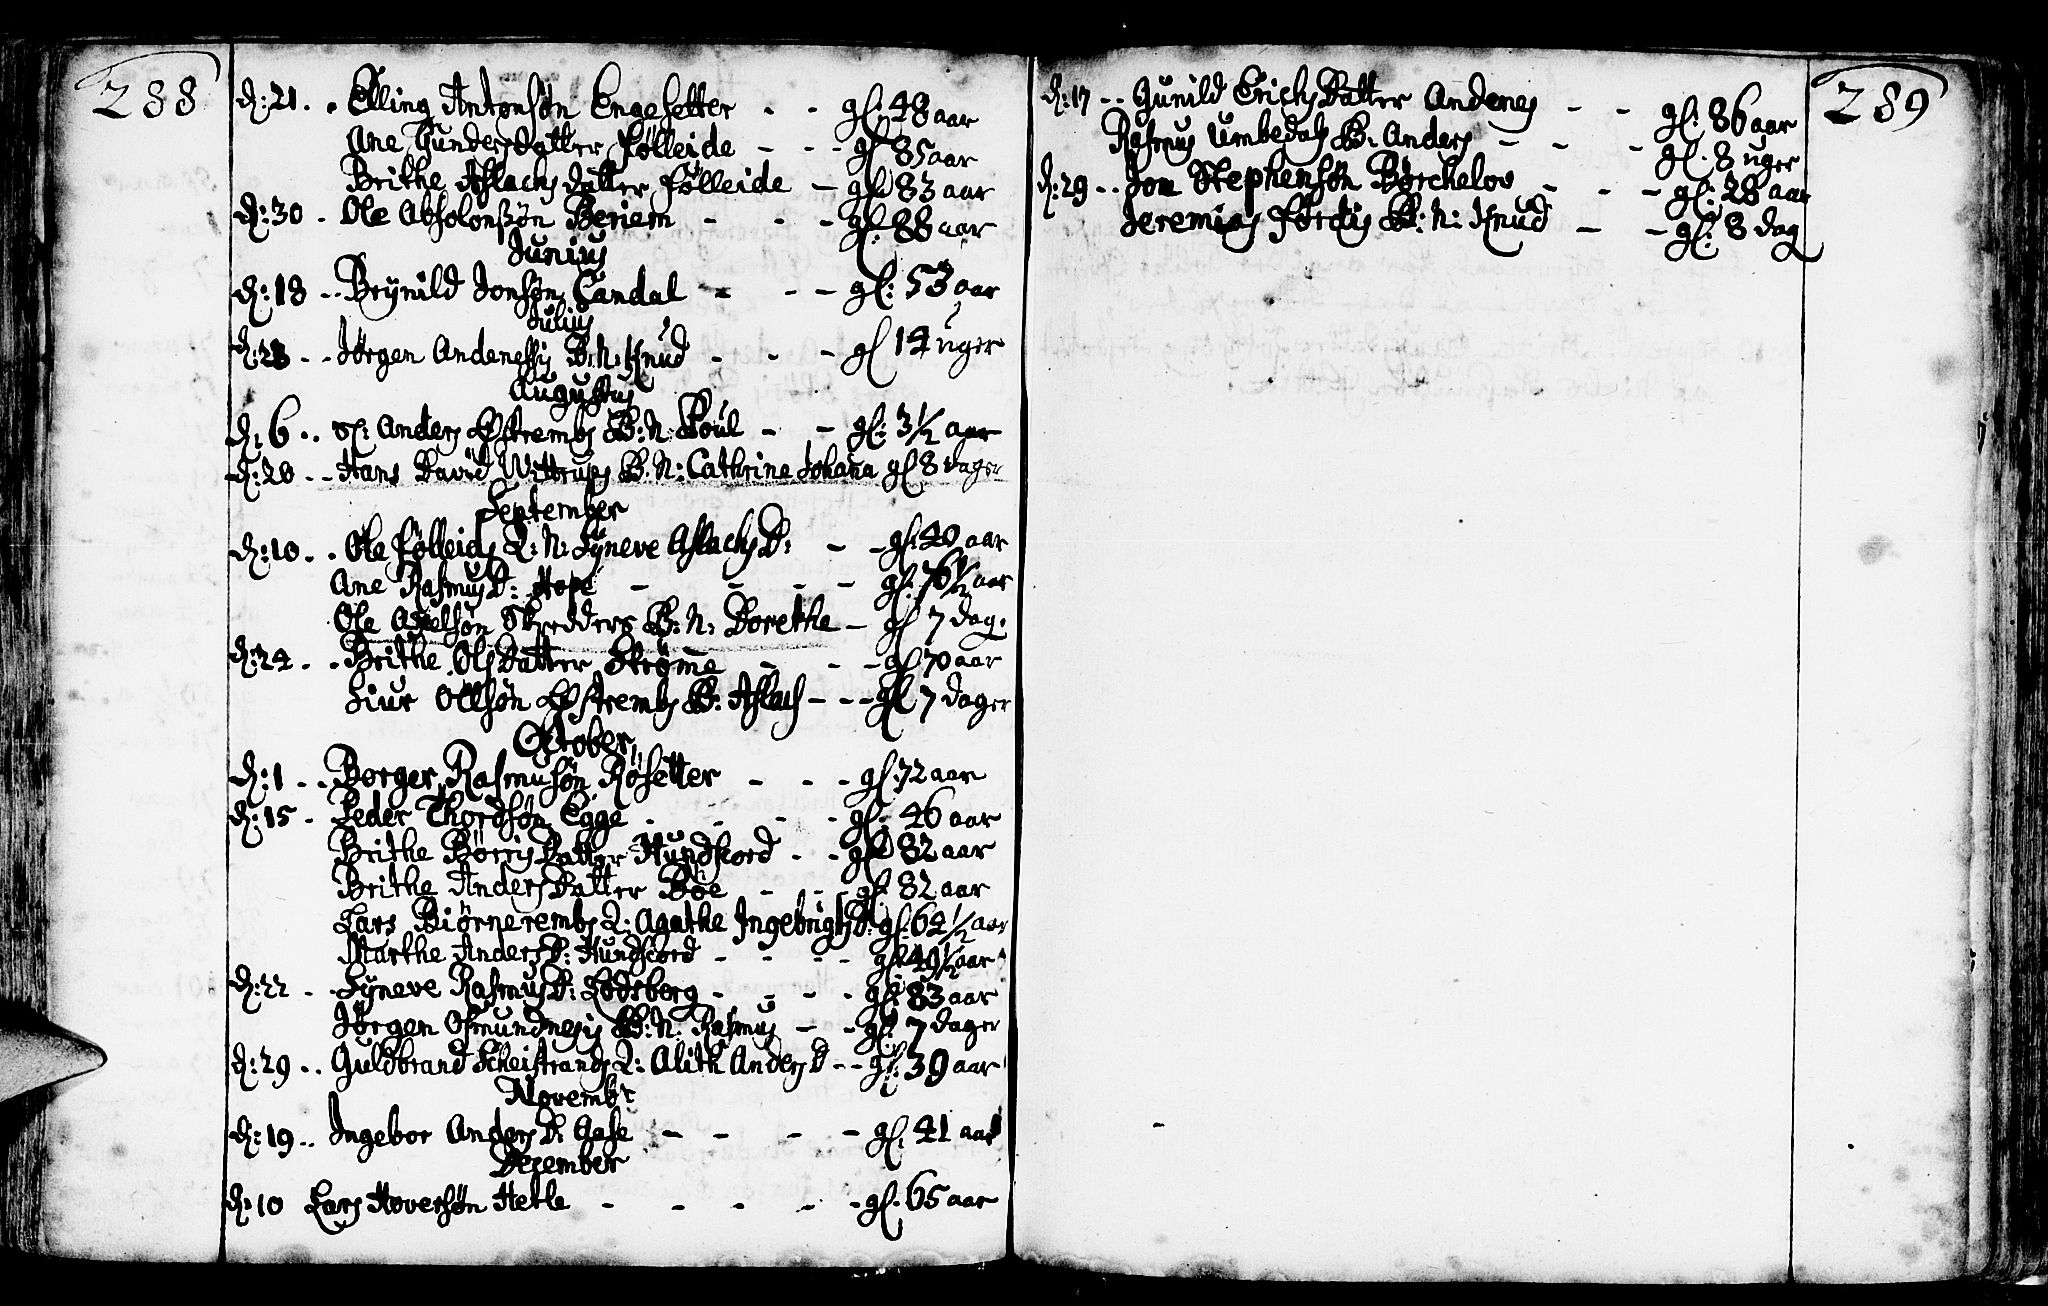 288
d: 21. . Elling Antonsøn Engesetter - - gl: 48 aar
Ane GundersDatter Følleide - - - gl: 85 aar
Brithe AslachsDatter Følleide - gl: 83 aar
d: 30 - Ole Absolonsøn Beriem - - - gl: 88 aar
Junius
d: 18 - . Brÿnild Jonsøn Sandal - - - gl: 53 aar
Julius
d: 23 - - Jørgen Andenessis B: N: Knud - - - gl 14 uger
Augustus
d: 6 . . Sl: Anders Østrembs B: N: Poul - - gl: 3 1/2 aar
d: 20 - - Hans David Wittrups B. N: Cathrine Johana gl 8 dager
September
d: 10 . . Ole Følleids Q: N: Sÿneve Aslachs D: - - gl: 40 aar
Ane RasmusD: Hope - - - - gl: 76 1/2 aar
Ole Axelsøn Skredders B: N: Dorethe - gl 7 dag.
d: 24 . . Brithe OlsDatter Strøme - - - gl 70 aar
Siur Ollsøn Østrembs B: Aslach - - - gl 7 dager
October
d: 1 . . Borger Rasmusøn Røsetter - - - gl: 72 aar
d: 15 - Peder Thordsøn Egge - - - - gl: 46 aar
Brithe BørrisDatter Hundscord - - gl: 82 aar
Brithe AndersDatter Böe - - gl: 82 aar
Lars Biørnerembs Q: Agathe IngebrigtsD: gl: 64 1/2 aar
Marthe AndersD: Hundscord - - - - gl: 49 1/2 aar
d: 22 - . Sÿneve RasmusD: Lodsberg - - - - gl: 83 aar
Jørgen Osmundnesis B: N: Rasmus - - gl: 7 dager
d: 29 . . Guldbrand Scheistrands Q: Alith AndersD - - gl: 39 aar
Novembr
d: 19 . . Ingebor AndersD: Aase - - - - gl: 41 aar
December
d: 10 Lars Hoversøn Hetle - - - - - gl: 65 aar
289
d: 17 - - Gunild ErichsDatter Andenes - - gl: 86 aar
Rasmus Umbedals B: Anders - - - gl. 8 uger
d: 29 - - Jon Stephensøn Børchelov - - - gl: 28 aar
Jeremias Førdis B: N: Knud - - gl: 8 dag